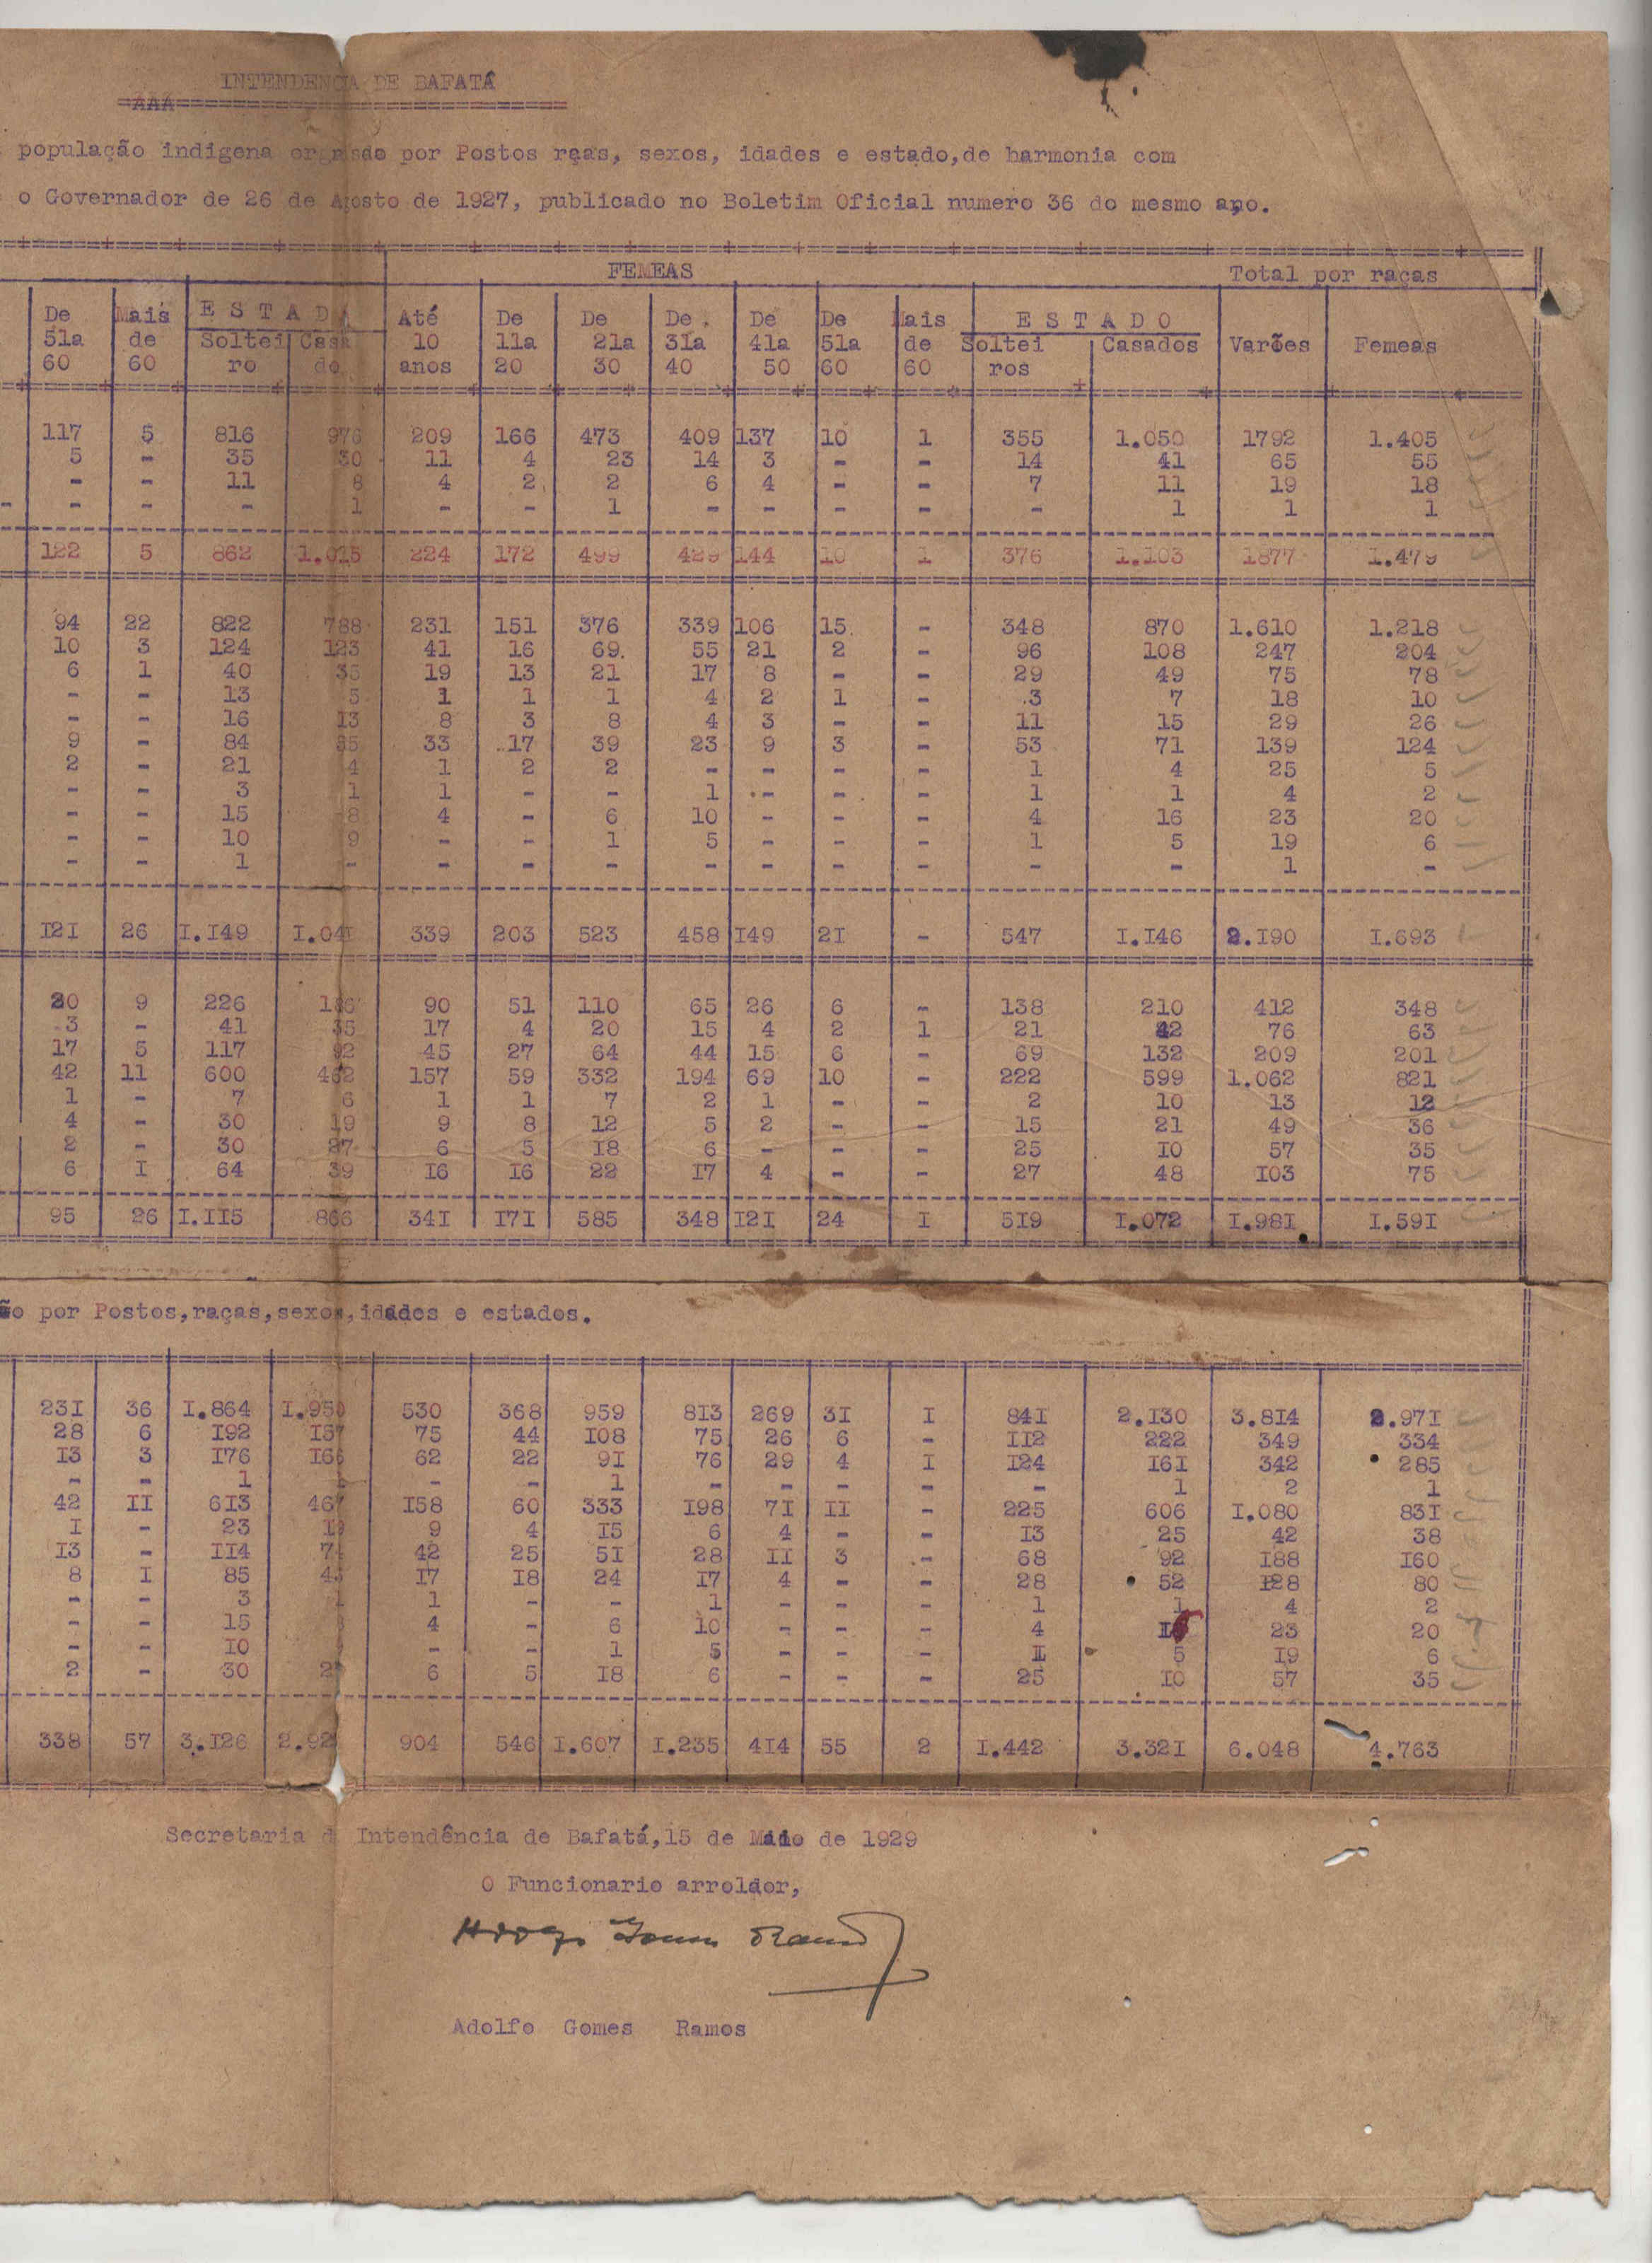 INTENDENCIA DE BAFATÁ
=AAA=
população indigena por Postos rças, sexos, idades e estado,de harmonia com
o Governador de 26 de Agosto de 1927, publicado no Boletim Oficial numero 36 do mesmo ano.
FEMEAS Total por raças
De Mais E S T A D A Até De De De De De Mais E S T A D O
51a de Soltei Casa 10 11a 21a 31a 41a 51a de Soltei Casados Varões Femeas
60 60 ro do anos 20 30 40 50 60 60 ros
117 5 816 976 209 166 473 409 137 10 1 355 1.050 1792 1.405
5 - 35 30 11 4 23 14 3 - - 14 41 65 55
- - 11 8 4 2 2 6 4 - - 7 11 19 18
- - - - 1 - - 1 - - - - - 1 1 1
122 5 862 1.015 224 172 499 429 144 10 1 376 1.103 1877 1.479
94 22 822 788 231 151 376 339 106 15 - 348 870 1.610 1.218
10 3 124 123 41 16 69. 55 21 2 - 96 108 247 204
6 1 40 35 19 13 21 17 8 - - 29 49 75 78
- - 13 5 1 1 1 4 2 1 - 3 7 18 10
- - 16 13 8 3 8 4 3 - - 11 15 29 26
9 - 84 55 33 17 39 23 9 3 - 53 71 139 124
2 - 21 4 1 2 2 - - - - 1 4 25 5
- - 3 1 1 - - 1 - - - 1 1 4 2
- - 15 8 4 - 6 10 - - - 4 16 23 20
- - 10 9 - - 1 5 - - - 1 5 19 6
- - 1 - - - - - - - - - - 1 -
I2I 26 I.I49 I.04I 339 203 523 458 I49 2I - 547 I.I46 2.I90 I.693
20 9 226 186 90 51 110 65 26 6 - 138 210 412 348
3 - 41 35 17 4 20 15 4 2 1 21 42 76 63
17 5 117 92 45 27 64 44 15 6 - 69 132 209 201
42 11 600 462 157 59 332 194 69 10 - 222 599 1.062 821
1 - 7 6 1 1 7 2 1 - - 2 10 13 12
4 - 30 19 9 8 12 5 2 - - 15 21 49 36
2 - 30 27 6 5 I8 6 - - - 25 I0 57 35
6 I 64 39 I6 I6 22 I7 4 - - 27 48 I03 75
95 26 I.II5 866 34I I7I 585 348 I2I 24 I 5I9 I.072 I.98I I.59I
ão por Postos,raças,sexos,idades e estados.
23I 36 I.864 I.950 530 368 959 8I3 269 3I I 84I 2.I30 3.8I4 2.97I
28 6 I92 I57 75 44 I08 75 26 6 - II2 222 349 334
I3 3 I76 I66 62 22 9I 76 29 4 I I24 I6I 342 285
- - 1 - - 1 - - - - - 1 2 1
42 II 6I3 467 I58 60 333 I98 7I II - 225 606 I.080 83I
I - 23 I9 9 4 I5 6 4 - - I3 25 42 38
I3 - II4 74 42 25 5I 28 II 3 - 68 92 I88 I60
8 I 85 43 I7 I8 24 I7 4 - - 28 52 I28 80
- - 3 1 1 - - 1 - - - 1 1 4 2
- - 15 4 - 6 10 - - - 4 16 23 20
- - I0 - - 1 5 - - - I 5 I9 6
2 - 30 27 6 5 I8 6 - - - 25 I0 57 35
338 57 3.I26 2.92 904 546 I.607 I.235 4I4 55 2 I.442 3.32I 6.048 4.763
Secretaria d Intendência de Bafatá,15 de Maio de 1929
O Funcionario arrolador,
Adolfo Gomes Ramos
Adolfo Gomes Ramos